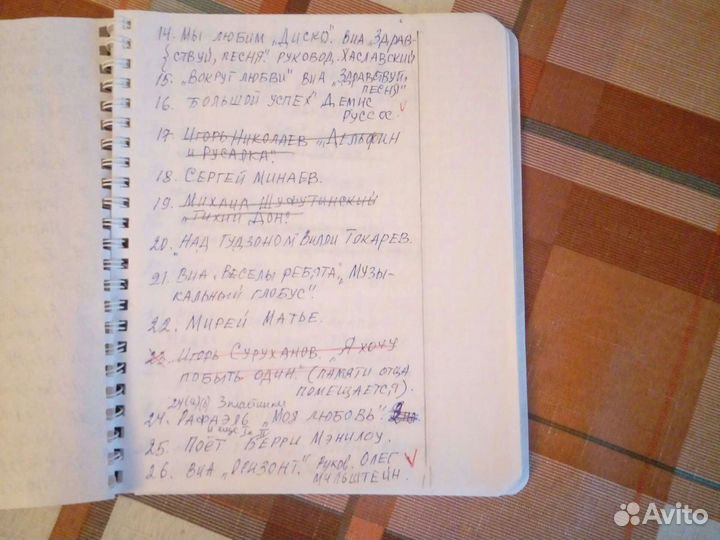 14. Мы любим „Диско“. ВИА „Здрав-
ствуй, песня“. Руковод. Хаславский
15. „Вокруг любви“ ВИА „Здравствуй,
песня“
16. Большой успех“ Демис
Руссос.
17. Игорь Николаев „Дельфин
и русалка“.
18. Сергей Минаев.
19. Михаил Шуфутинский
„Тихий Дон“.
20. „Над Гудзоном“ Вилли Токарев.
21. ВИА „Веселы ребята“, „Музы-
кальный глобус“.
22. Мирей Матье.
23. Игорь Суруханов. „Я хочу
побыть один.“ (памяти отца
помещается).
24(а)(б) 3 пластинки
24. Рафаэль „Моя любовь“ 2
и еще I и II
25. Поёт Берри Мэнилоу.
26. ВИА „Оризонт.“ Руков. Олег
Мильштейн.
Avito